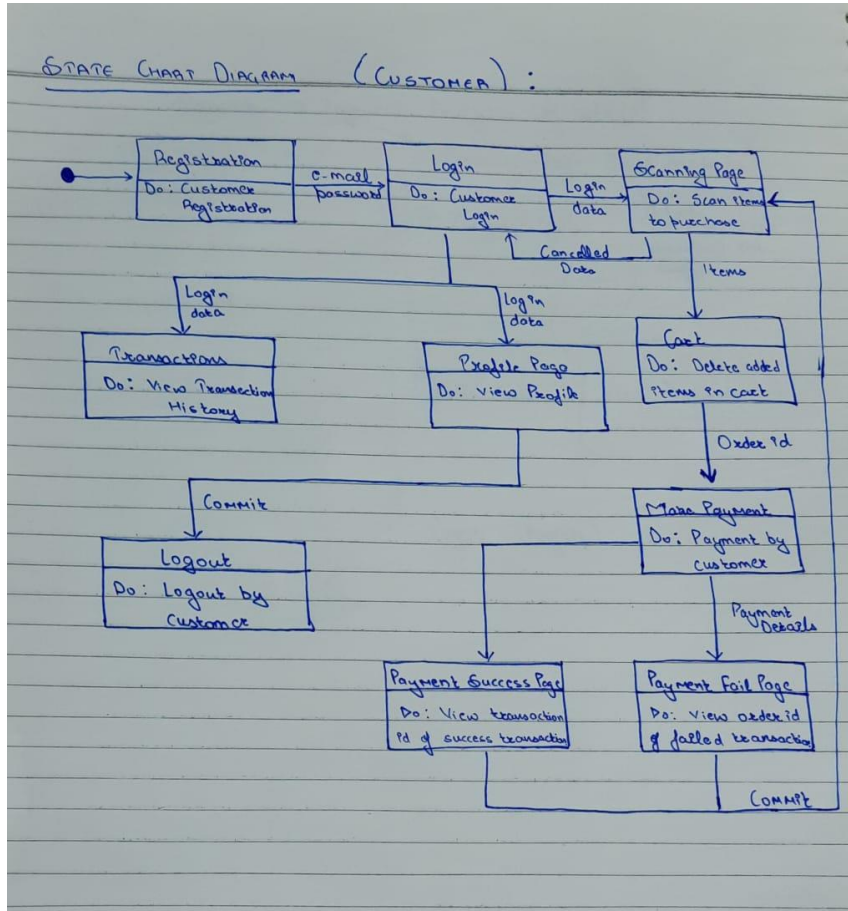 STATE CHART DIAGRAM (CUSTOMER) :
Registration
Do: Customer
Registration
e-mail
password
Login
Do: Customer
Login
Login
data
Scanning Page
Do: Scan items
to purchase
Cancelled
Data
Items
Login
data
Login
data
Transactions
Do: View Transection
History
Profile Page
Do: View Profile
Cart
Do: Delete added
items in cart
Order id
Commit
Logout
Do: Logout by
Customer
Make Payment
Do: Payment by
customer
Payment
Details
Payment Success Page
Do: View transaction
id of success transaction
Payment Fail Page
Do: View order id
of failed transaction
Commit